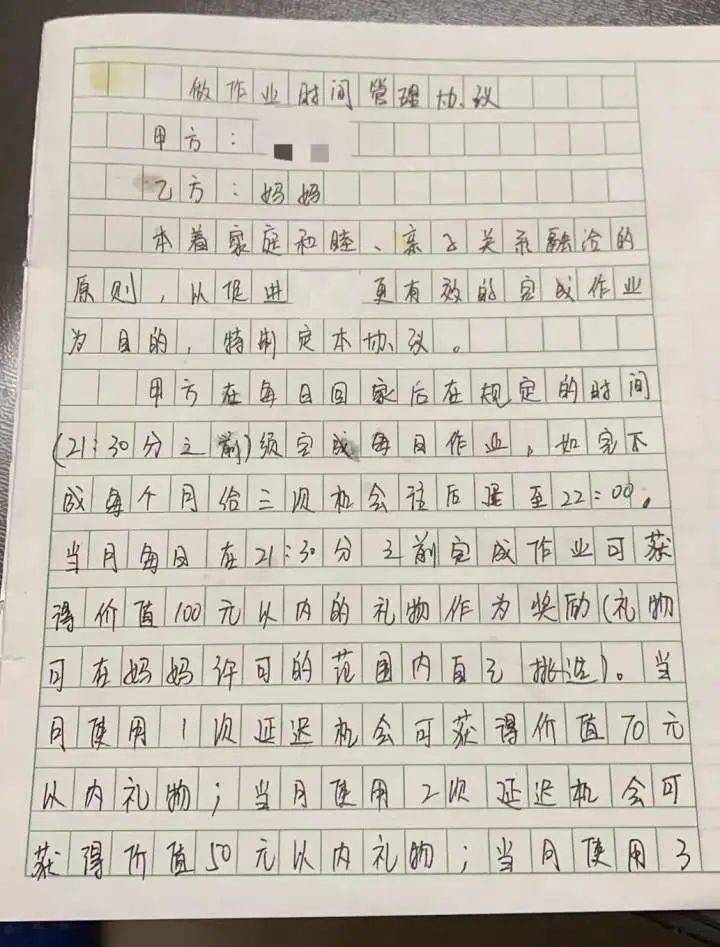 做作业时间管理协议
甲方：
乙方：妈妈
本着家庭和睦、亲子关系融洽的
原则，以促进 更有效的完成作业
为目的，特制定本协议。
甲方在每日回家后在规定的时间
(21:30分之前)须完成每日作业，如完不
成每个月给三次机会往后延至22:00。
当月每日在21:30分之前完成作业可获
得价值100元以内的礼物作为奖励(礼物
可在妈妈许可的范围内自己挑选)。当
月使用1次延迟机会可获得价值70元
以内礼物；当月使用2次延迟机会可
获得价值50元以内礼物；当月使用3